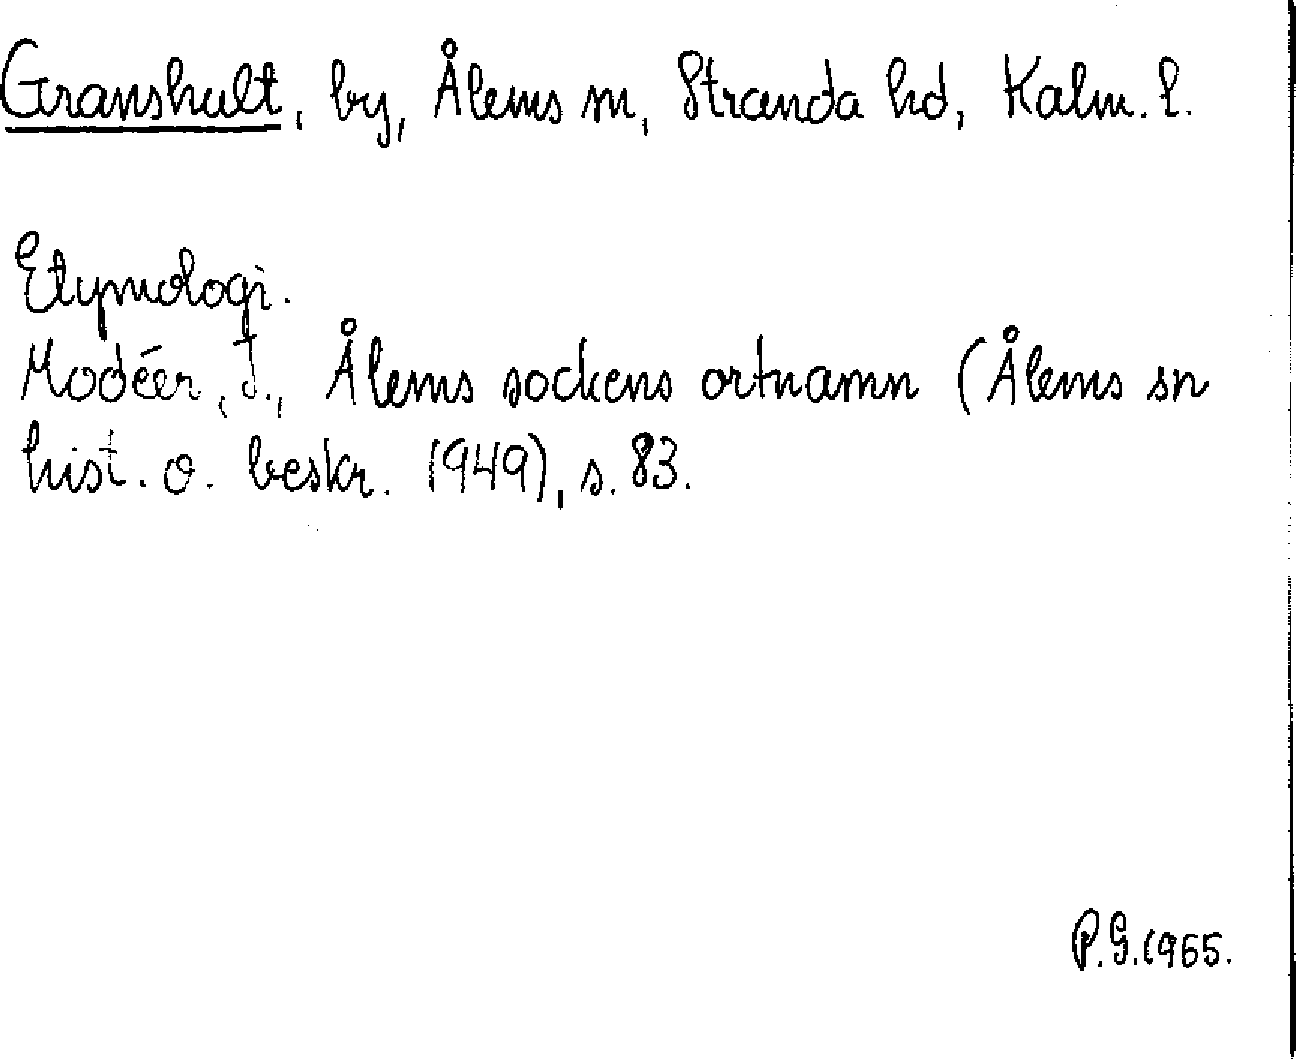 Granshult, by, Ålems sn, Stranda hd, Kalm. l.
Etymologi.
Modéer, I., Ålems sockens ortnamn (Ålems sn
hist. o. beskr. 1949), s. 83.
P. G. 1965.